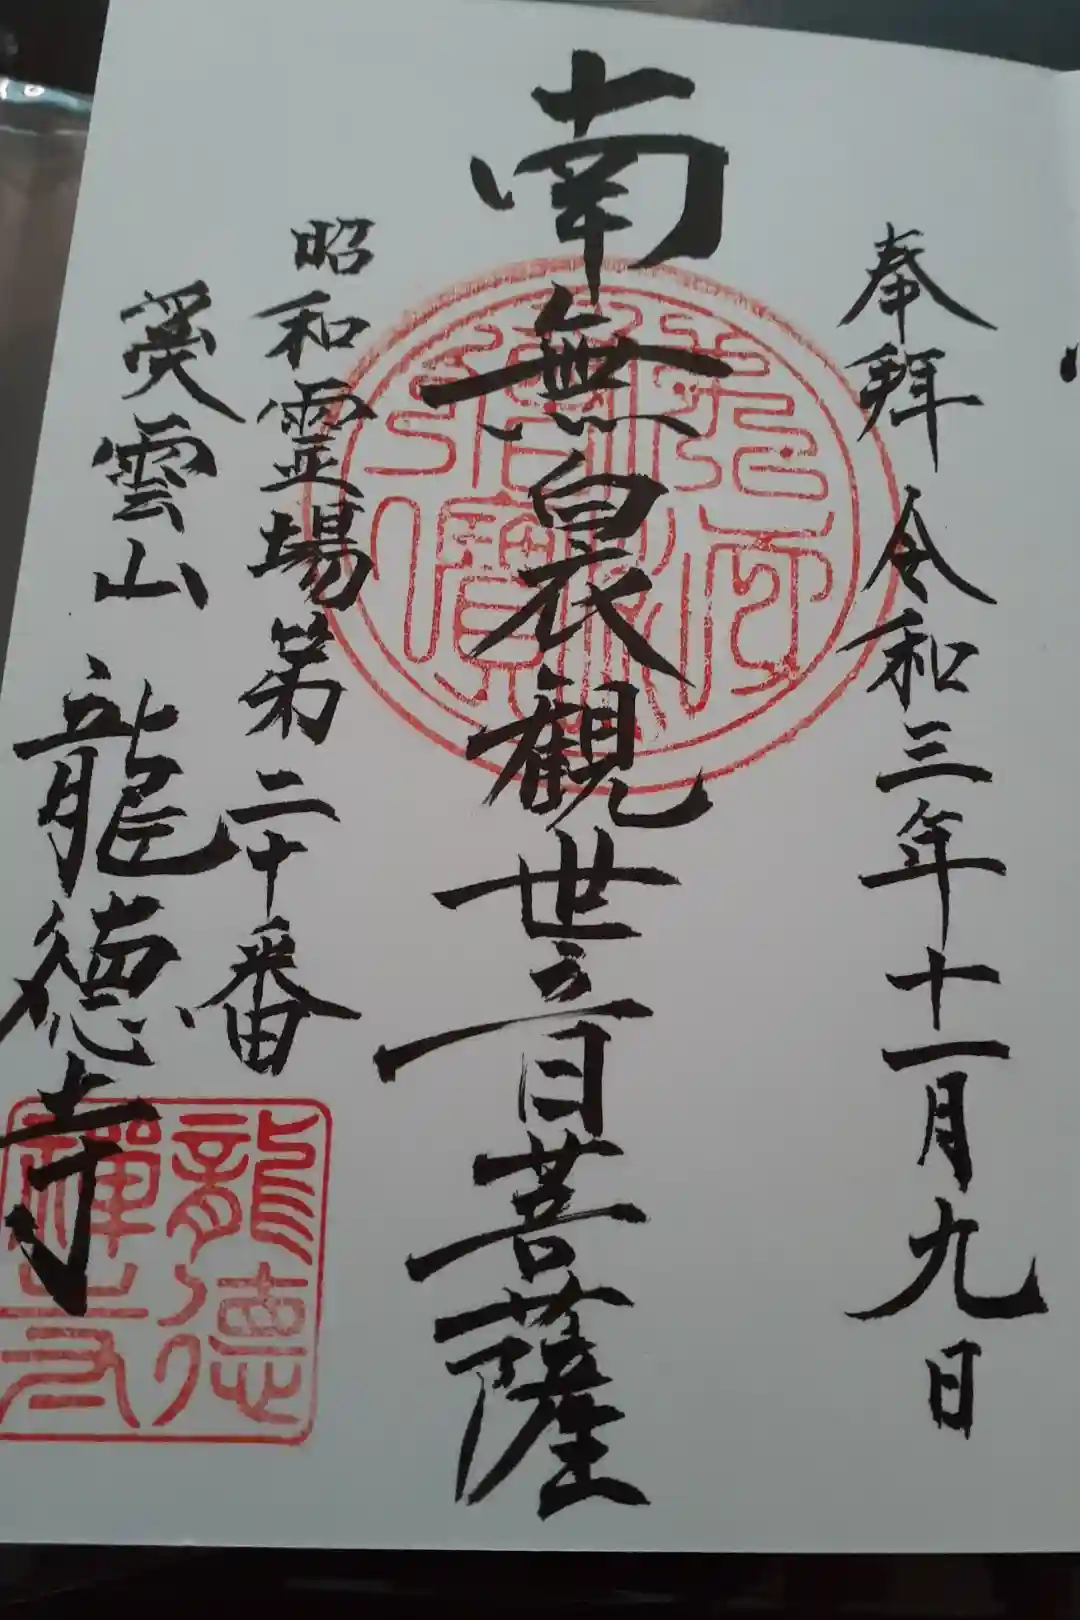 奉拝 令和三年十一月九日
南無白衣観世音菩薩
昭和霊場第二十番
雲山 龍徳寺
龍德
禪寺